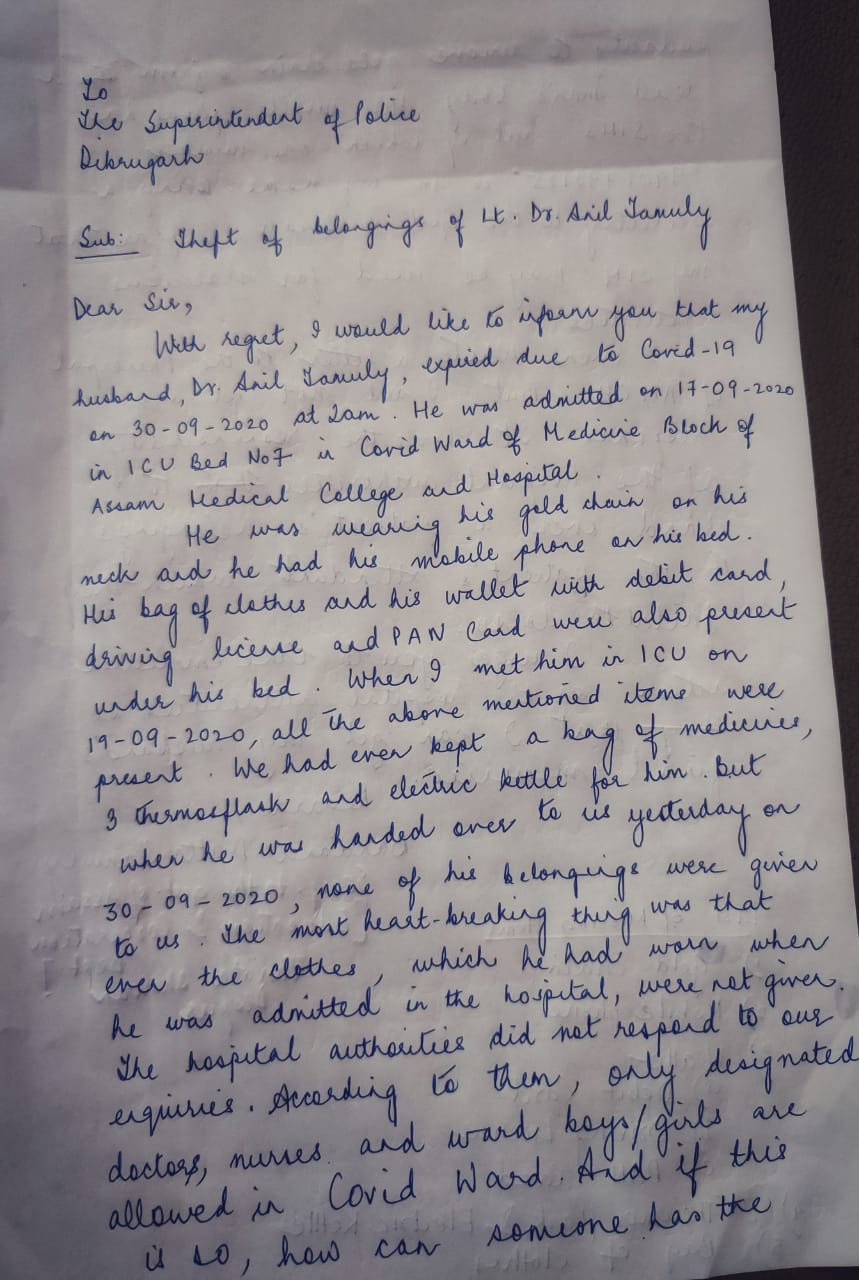 To
The Superintendent of Police
Dibrugarh
Sub: Theft of belongings of Lt. Dr. Anil Tamuly
Dear Sir,
With regret, I would like to inform you that my
husband, Dr. Anil Tamuly, expired due to Covid-19
on 30-09-2020 at 2am. He was admitted on 17-09-2020
in ICU Bed No7 in Covid Ward of Medicine Block of
Assam Medical College and Hospital.
He was wearing his gold chain on his
neck and he had his mobile phone on his bed.
His bag of clothes and his wallet with debit card,
driving license and PAN Card were also present
under his bed. When I met him in ICU on
19-09-2020, all the above mentioned items were
present. We had even kept a bag of medicines,
3 thermosflask and electric kettle for him. But
when he was handed over to us yesterday on
30-09-2020, none of his belongings were given
to us. The most heart-breaking thing was that
even the clothes, which he had worn when
he was admitted in the hospital, were not given.
The hospital authorities did not respond to our
enquiries. According to them, only designated
doctors, nurses and ward boys/girls are
allowed in Covid Ward. And if this
is so, how can someone has the